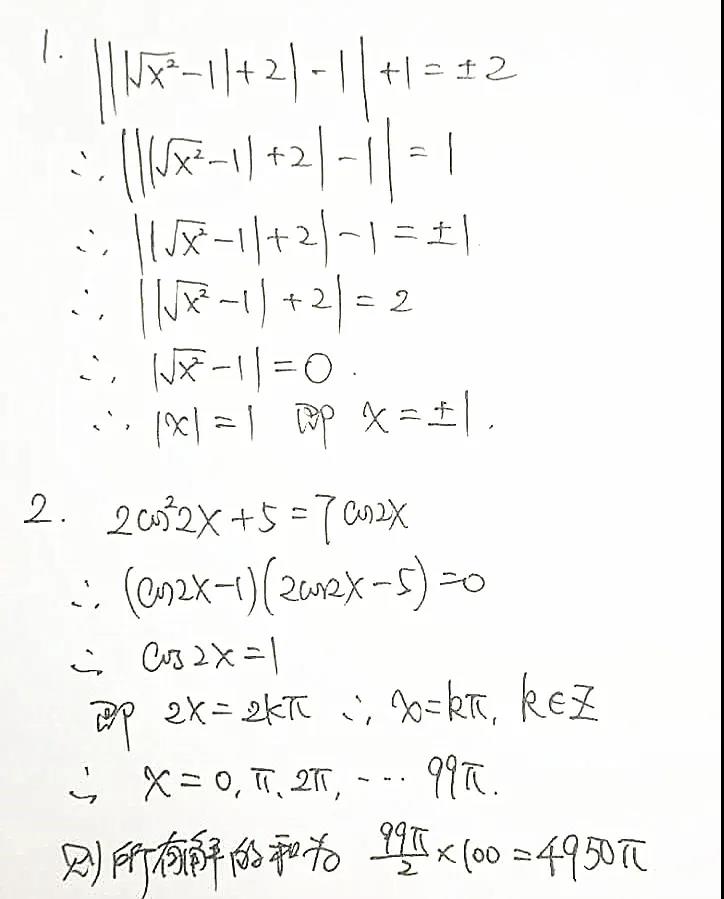 1. ||||√x²-1|+2|-1|+1=±2
∴ ||||√x²-1|+2|-1|=1
∴ |||√x²-1|+2|-1=±1.
∴ ||√x²-1|+2|=2
∴ |√x²-1|=0.
∴ |x|=1 即 x=±1.
2. 2cos²2x+5=7cos2x
∴ (cos2x-1)(2cos2x-5)=0
∴ cos2x=1
即 2x=2kπ ∴ x=kπ, k∈Z
∴ x=0,π、2π, ... 99π.
则所有解的和为 99π/2×100=4950π